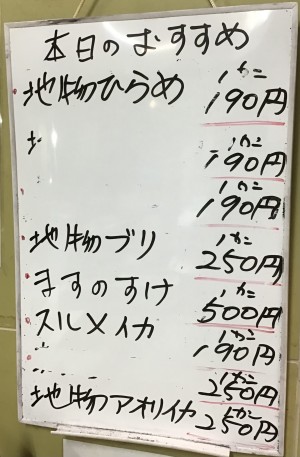 本日のおすすめ
地物ひらめ 1カン 190円
1カン 190円
1カン 190円
地物ブリ 1カン 250円
ますのすけ 1カン 500円
スルメイカ 1カン 190円
1カン 250円
地物アオリイカ 1カン 250円